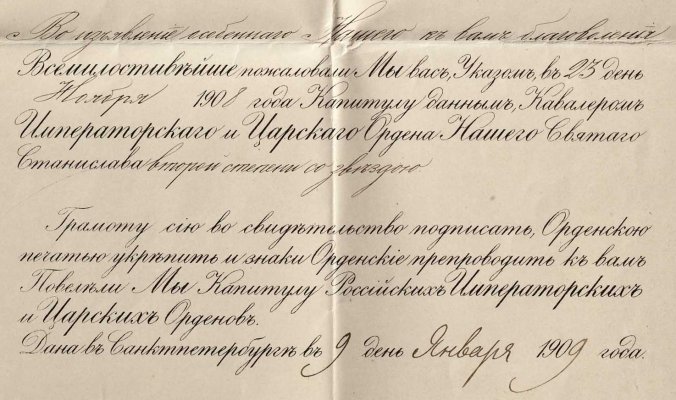 Во изъявленіе особеннаго Нашего къ вамъ благоволенія,
Всемилостивѣйше пожаловали Мы васъ, Указомъ, въ 23 день
Ноября 1908 года Капитулу даннымъ, Кавалеромъ
Императорскаго и Царскаго Ордена Нашего Святаго
Станислава второй степени со звѣздою
Грамоту сію во свидѣтельство подписать, Орденскою
печатью укрѣпить и знаки Орденскіе препроводить къ вамъ
Повелѣли Мы Капитулу Россійскихъ Императорскихъ
и Царскихъ Орденовъ.
Дана въ Санктпетербургѣ въ 9 день Января 1909 года.